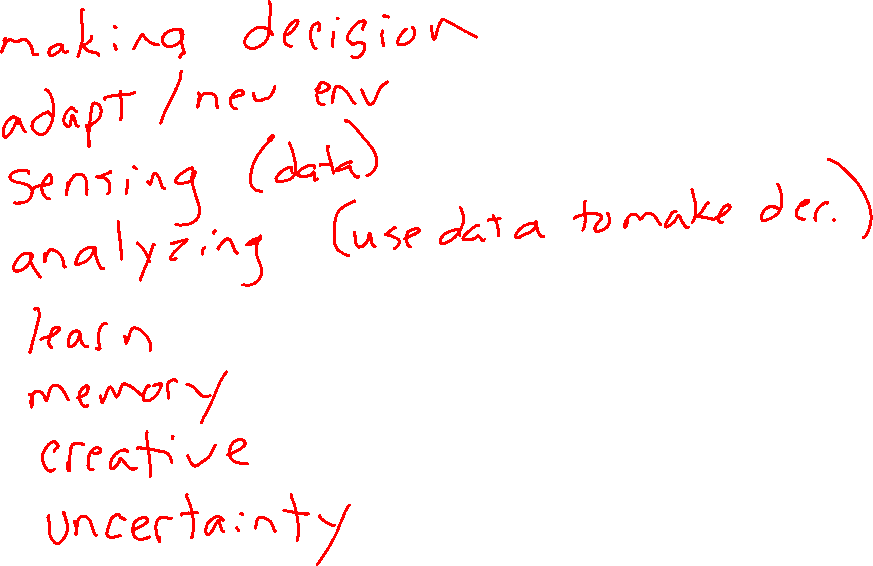 making decision
adapt / new env
sensing (data)
analyzing (use data to make dec.)
learn
memory
creative
uncertainty